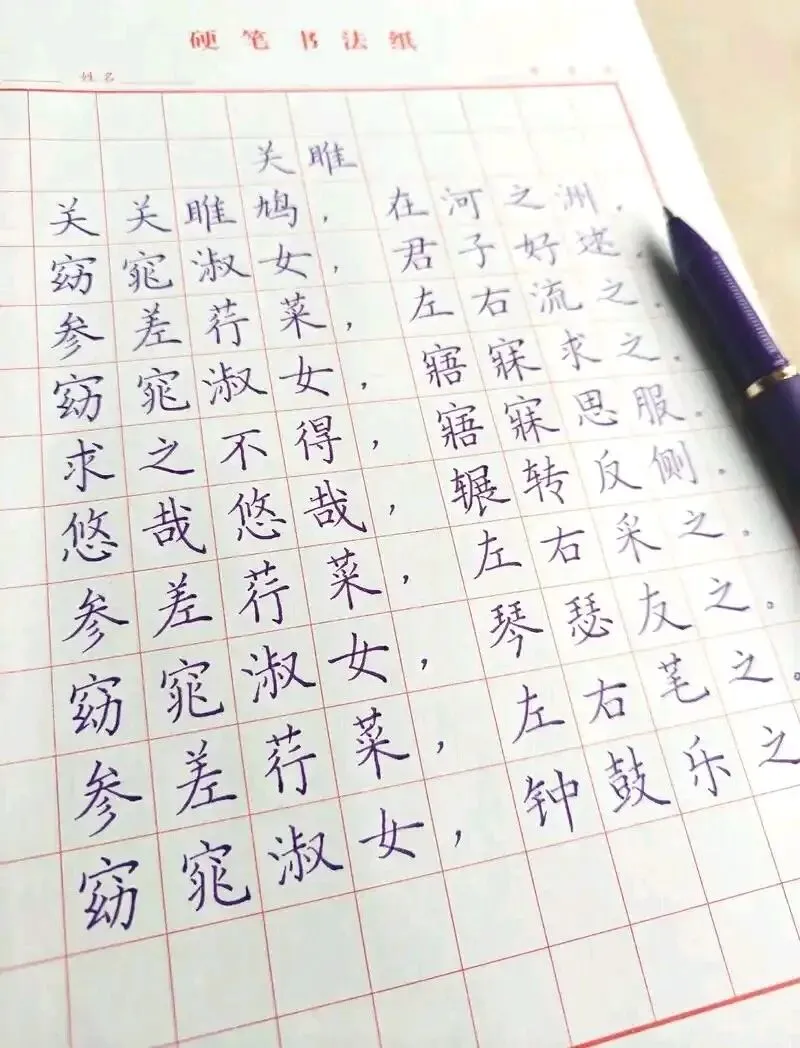 硬笔书法纸
姓名
关雎
关关雎鸠，在河之洲。
窈窕淑女，君子好逑。
参差荇菜，左右流之。
窈窕淑女，寤寐求之。
求之不得，寤寐思服。
悠哉悠哉，辗转反侧。
参差荇菜，左右采之。
窈窕淑女，琴瑟友之。
参差荇菜，左右芼之。
窈窕淑女，钟鼓乐之